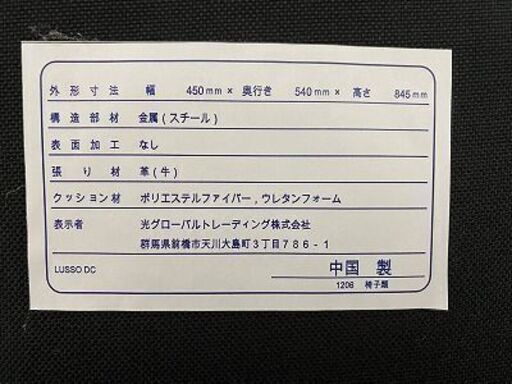 外形寸法 幅 450mm× 奥行き 540mm× 高さ 845mm
構造部材 金属(スチール)
表面加工 なし
張り材 革(牛)
クッション材 ポリエステルファイバー,ウレタンフォーム
表示者 光グローバルトレーディング株式会社
群馬県前橋市天川大島町3丁目786-1
LUSSO DC 中国 製
1206 椅子類